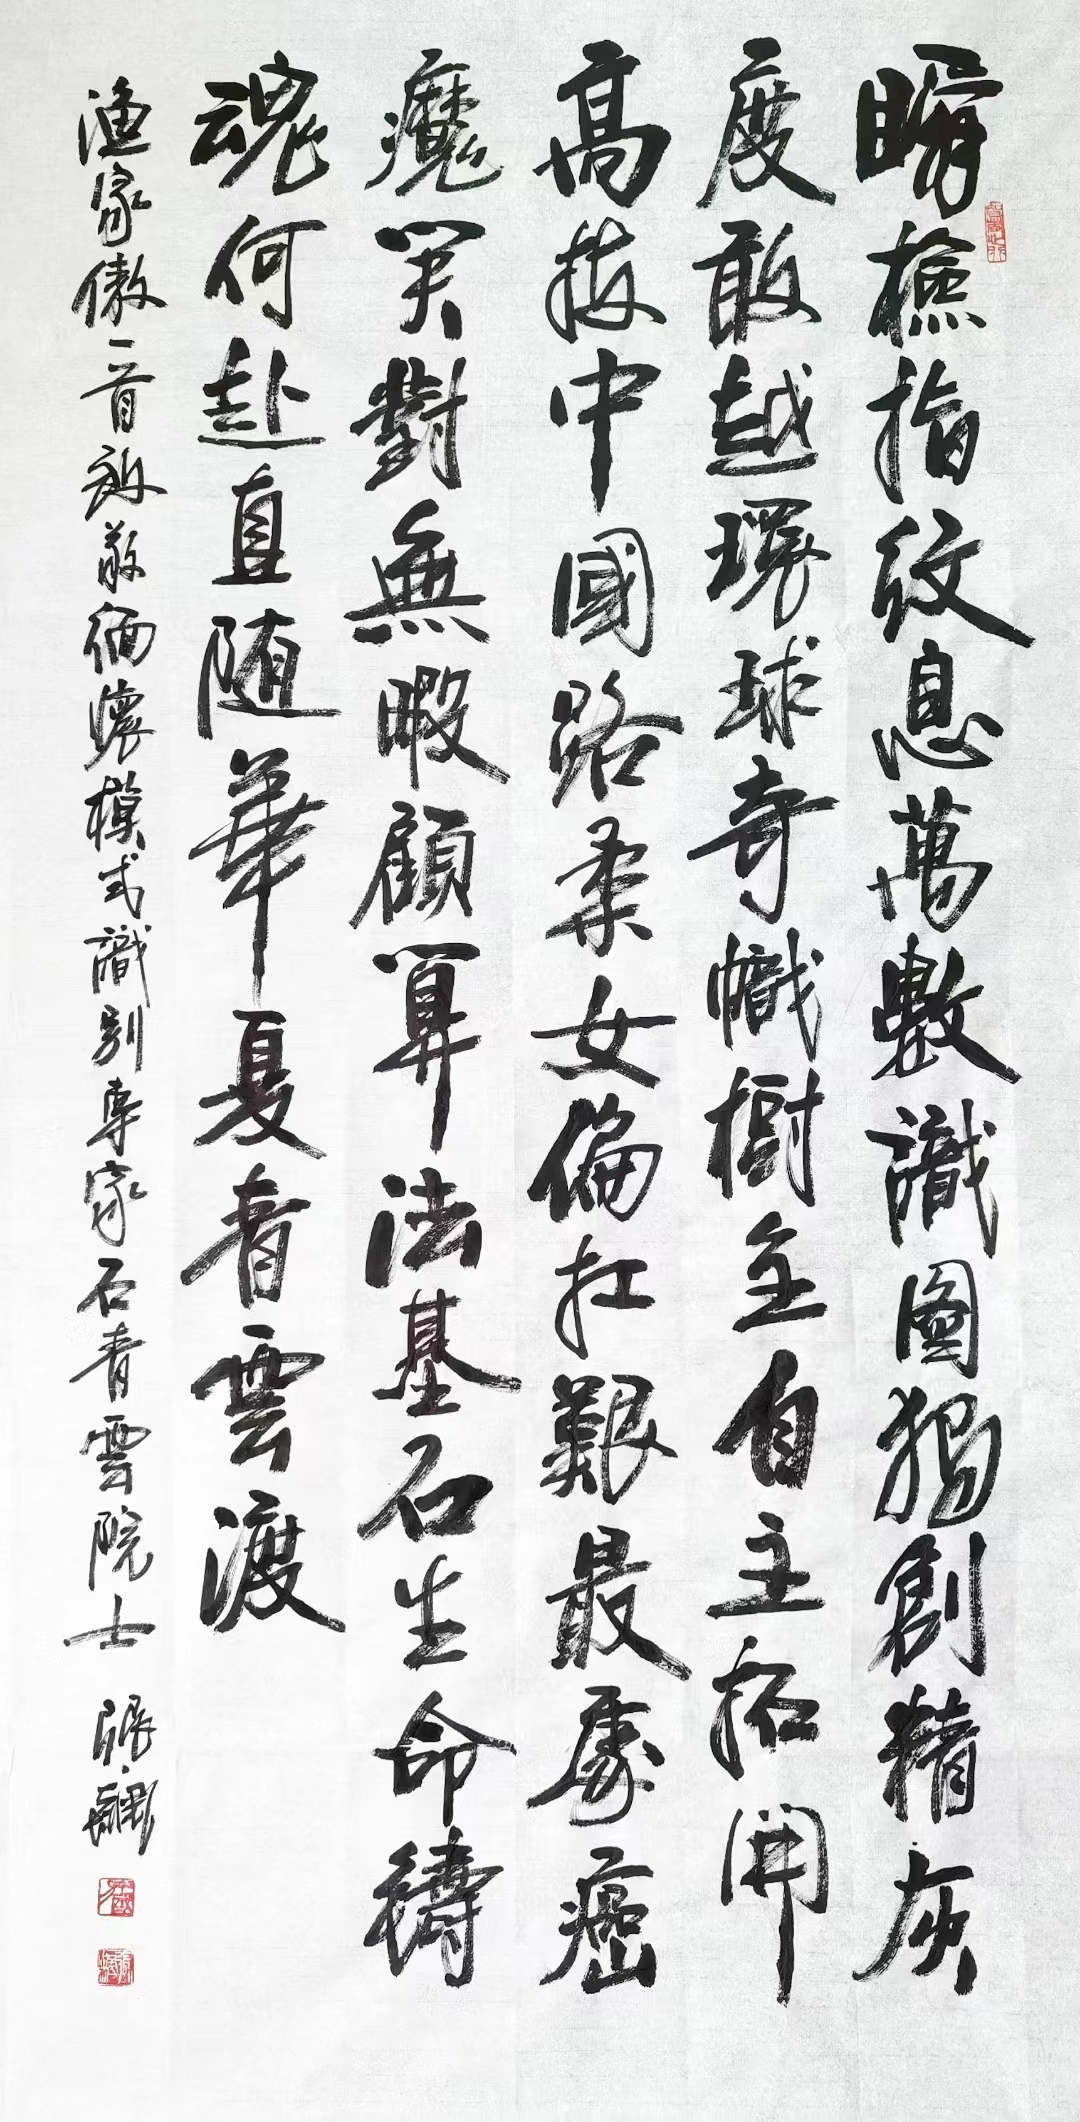 瞬檢指紋息萬數識圖獨創精灰
度敢越環球奇幟樹主自主拓開
高技中國路柔女偏扛艱最處癌
魔笑對無暇顧算法基石生命鑄
魂何赴直随華夏青雲渡
渔家傲一首致敬缅懷模式識别專家石青雲院士 張